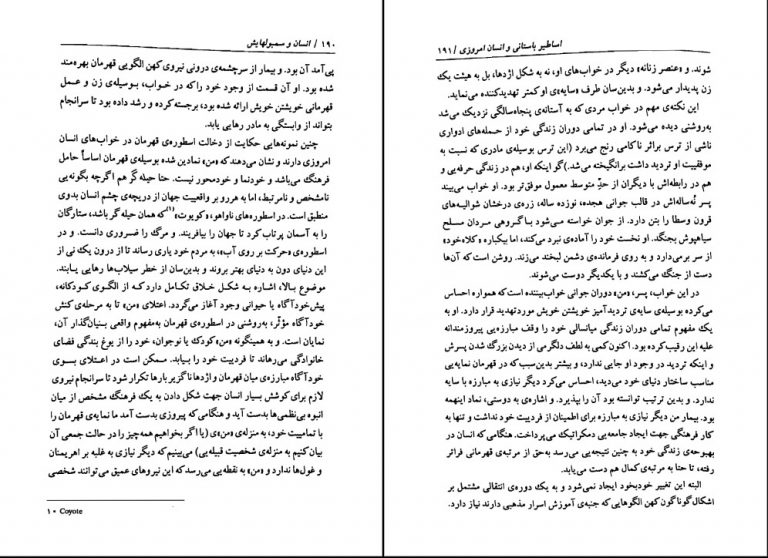 ۱۹۰ / انسان و سمبولهایش
پی‌آمد آن بود. و بیمار از سرچشمه‌ی درونی نیروی کهن الگویی قهرمان بهره‌مند
شده بود. او آن قسمت از وجود خود را که در خواب، بوسیله‌ی زن و عمل
قهرمانی خویشتن خویش ارائه شده بود، برجسته کرده و رشد داده بود تا سرانجام
بتواند از وابستگی به مادر رهایی یابد.
چنین نمونه‌هایی حکایت از دخالت اسطوره‌ی قهرمان در خواب‌های انسان
امروزی دارند و نشان می‌دهند که «من» نمادین شده بوسیله‌ی قهرمان اساساً حامل
فرهنگ می‌باشد و خودنما و خودمحور نیست. حتا حیله‌گر هم اگرچه بگونه‌یی
نامشخص و نامرتبط، اما به هررو بر واقعییت جهان از دریچه‌ی چشم انسان بدوی
منطبق است. در اسطوره‌های ناواهو، «کویوت»(۱) که همان حیله گر باشد، ستارگان
را به آسمان پرتاب کرد تا جهان را بیافریند. و مرگ را ضروری دانست. و در
اسطوره‌ی «حرکت بر روی آب»، به مردم خود یاری رساند تا از درون یک نی از
این دنیای دون به دنیای بهتر بروند و بدین‌سان از خطر سیلاب‌ها رهایی یابند.
موضوع بالا، اشاره به شکل خلاق تکامل دارد که از الگوی کودکانه،
پیش‌خودآگاه یا حیوانی وجود آغاز می‌گردد. اعتلای «من» تا به مرحله‌ی کنش
خودآگاه مؤثّر، به‌روشنی در اسطوره‌ی قهرمان به‌مفهوم واقعی بنیان‌گذار آن،
نمایان است. و به همینگونه «من» کودک یا نوجوان، خود را از یوغ بندگی فضای
خانوادگی می‌رهاند تا فردییت خود را بیابد. ممکن است در اعتلای بسوی
خودآگاه مبارزه‌ی میان قهرمان و اژدها ناگزیر بارها تکرار شود تا سرانجام نیروی
لازم برای کوشش بسیار انسان جهت شکل دادن به یک فرهنگ مشخص از میان
انبوه بی‌نظمی‌ها بدست آید و هنگامی که پیروزی بدست آمد ما نمایه‌ی قهرمان را
با تمامییت خود، به منزله‌ی «من» (یا اگر بخواهیم همه‌چیز را در حالت جمعی آن
بیان کنیم به منزله‌ی شخصییت قبیله‌یی) می‌بینیم که دیگر نیازی به غلبه بر اهریمنان
و غول‌ها ندارد و «من» به نقطه‌یی می‌رسد که این نیروهای عمیق می‌توانند شخصی
۱۰ Coyote
اساطیر باستانی و انسان امروزی / ۱۹۱
شوند. و «عنصر زنانه» دیگر در خواب‌های او، نه به شکل اژدها، بل به هیئت یک
زن پدیدار می‌شود. و بدین‌سان طرف «سایه‌ی او کمتر تهدیدکننده می‌نماید.
این نکته‌ی مهم در خواب مردی که به آستانه‌ی پنجاه‌سالگی نزدیک می‌شد
به‌روشنی دیده می‌شود. او در تمامی دوران زندگی خود از حمله‌های ادواری
ناشی از ترس براثر ناکامی رنج می‌برد (این ترس بوسیله‌ی مادری که نسبت به
موفقییت او تردید داشت برانگیخته می‌شد.) گو اینکه او، هم در زندگی حرفه‌یی و
هم در رابطه‌اش با دیگران از حدّ متوسط معمول موفق‌تر بود. او خواب می‌بیند
پسر نُه‌ساله‌اش در قالب جوانی هجده، نوزده ساله، زره‌ی درخشان شوالیه‌های
قرون وسطا را بتن دارد. از جوان خواسته می‌شود با گروهی مردان مسلح
سیاهپوش بجنگد. او نخست خود را آماده‌ی نبرد می‌کند، اما بیکباره «کلاه‌خود»
از سر برمی‌دارد و به روی فرمانده‌ی دشمن لبخند می‌زند. روشن است که آن‌ها
دست از جنگ می‌کشند و با یکدیگر دوست می‌شوند.
در این خواب، پسر، «من» دوران جوانی خواب‌بیننده است که همواره احساس
می‌کرده بوسیله‌ی سایه‌ی تردیدآمیز خویشتن خویش مورد تهدید قرار دارد. او به
یک مفهوم تمامی دوران زندگی میانسالی خود را وقف مبارزه‌یی پیروزمندانه
علیه این رقیب کرده بود. اکنون کمی به لطف دلگرمی از دیدن بزرگ شدن پسرش
و اینکه تردید در وجود او جایی ندارد، و بیشتر بدین‌سبب که در قهرمان نمایه‌یی
مناسب ساختار دنیای خود می‌دید، احساس می‌کرد دیگر نیازی به مبارزه با سایه
ندارد. و بدین ترتیب توانسته بود آن را بپذیرد. و اشاره‌ی به دوستی، نماد اینهمه
بود. بیمار من دیگر نیازی به مبارزه برای اطمینان از فردییت خود نداشت و تنها به
کار فرهنگی جهت ایجاد جامعه‌یی دمکراتیک می‌پرداخت. هنگامی که انسان در
بهبوحه‌ی زندگی خود به چنین نتیجه‌یی می‌رسد به‌حق از مرتبه‌ی قهرمانی فراتر
رفته، تا حتا به مرتبه‌ی کمال هم دست می‌یابد.
البته این تغییر خودبخود ایجاد نمی‌شود و به یک دوره‌ی انتقالی مشتمل بر
اشکال گوناگون کهن الگوهایی که جنبه‌ی آموزش اسرار مذهبی دارند نیاز دارد.